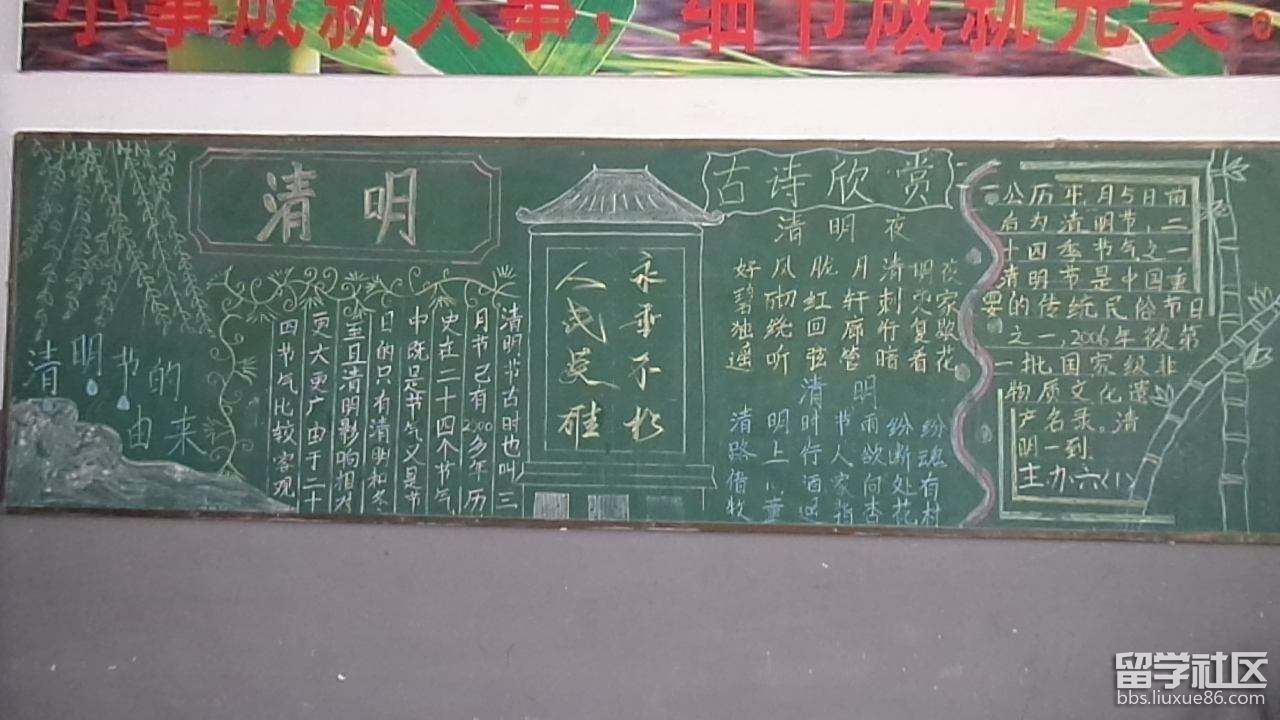 小事成就大事，细节成就完美。
清明
清明节的
由来
清明节古时也叫三
月节已有2000多年历
史在二十四个节气
中既是节气又是节
日的只有清明和冬
至且清明影响相对
更大更广由于二十
四节气比较客观
人民英雄
永垂不朽
古诗欣赏
清明夜
好风胧月清明夜
碧砌红轩刺史家
独绕回廊行复歇
遥听弦管暗看花
清明
清明时节雨纷纷
路上行人欲断魂
借酒家向处有
牧童遥指杏花村
公历年月5日前
后为清明节，二
十四季节气之一
清明节是中国重
要的传统民俗节日
之一，2006年被第
一批国家级非
物质文化遗
产名录。清
明一到
主办六(1)
留学社区
bbs.liuxue86.com